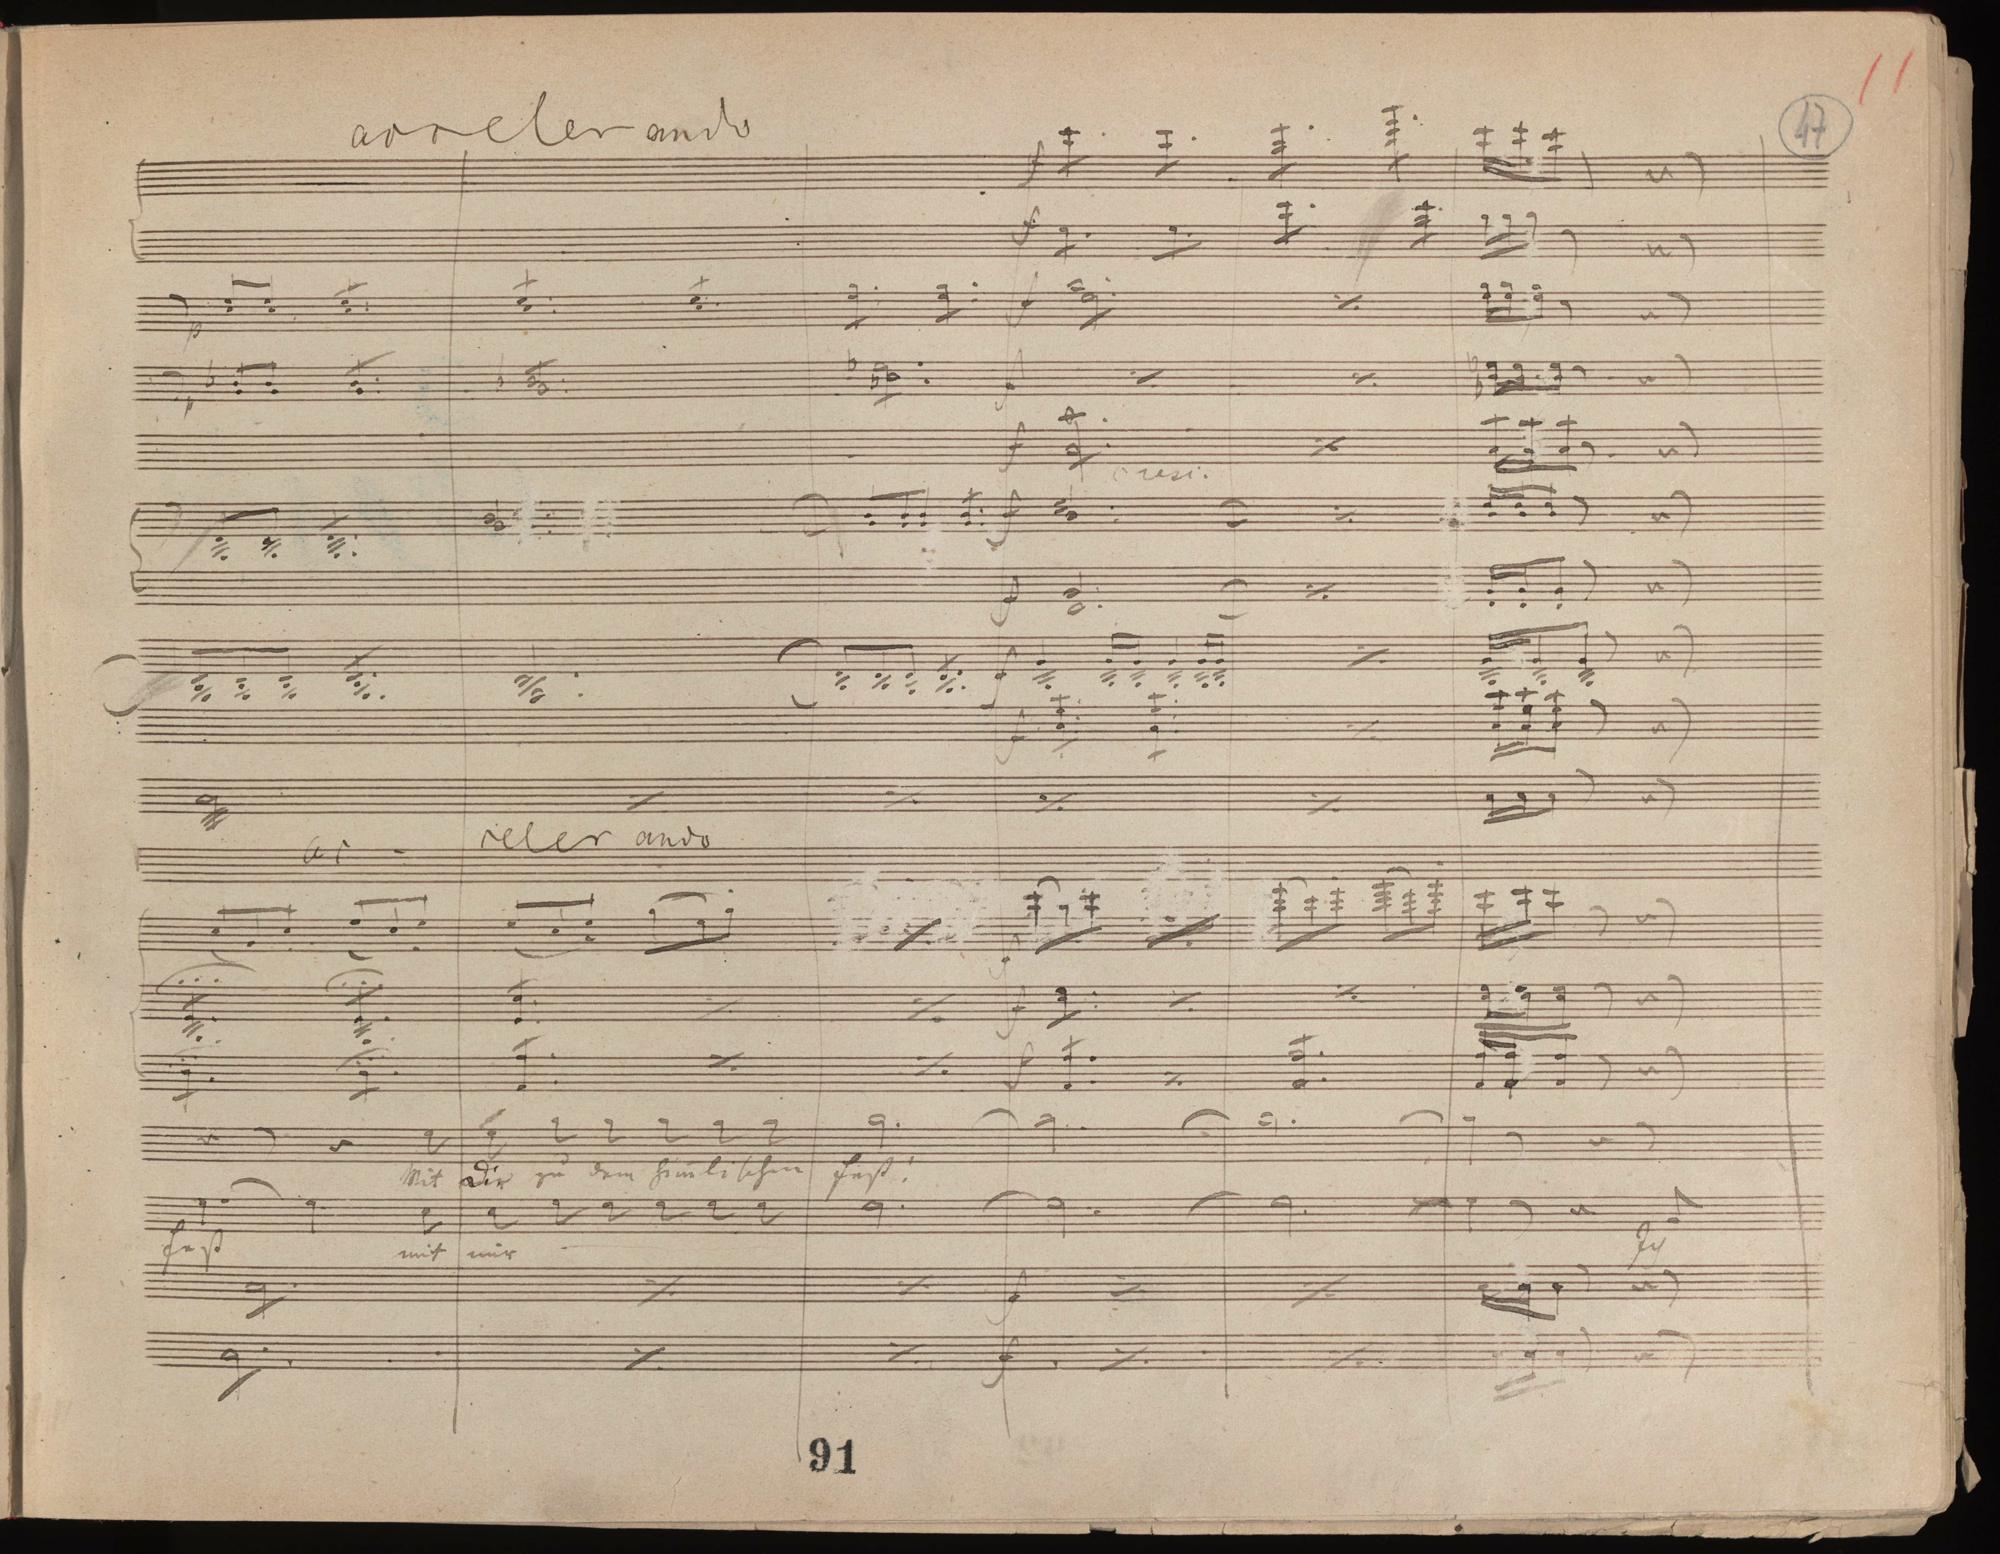 11
47
accelerando
f
f
p f
p f
f
cresc.
f
f
f
f
ac - celerando
f
f
f
Mit Dir zu dem himlischen Fest!
Fest mit mir Ich
f
f
91